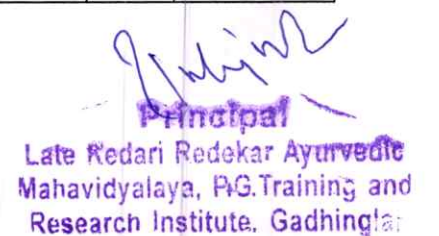 Principal
Late Kedari Redekar Ayurvedic
Mahavidyalaya, P.G.Training and
Research Institute, Gadhingla